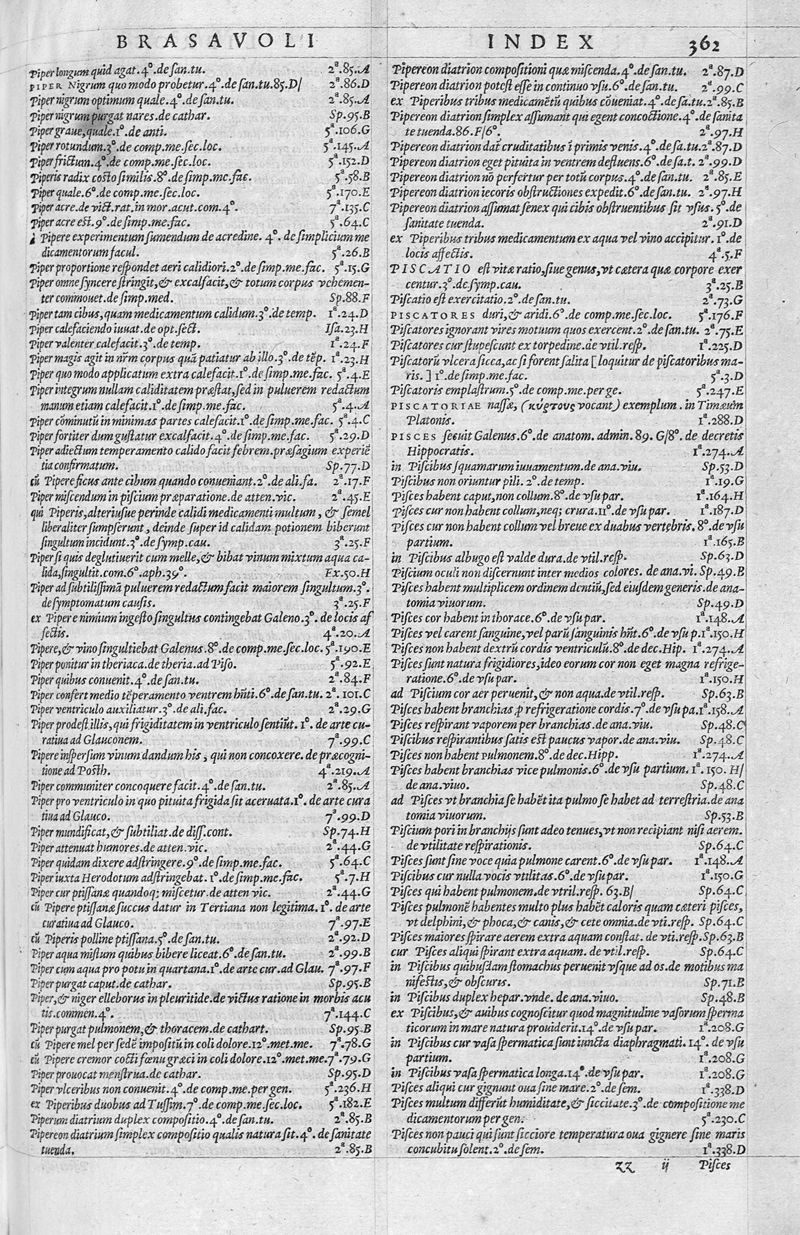 BRASAVOLI
Piper longum quid agat.4º.de ſan.tu. 2ª.85.A
PIPER Nigrum quo modo probetur.4º.de ſan.tu.85.D/ 2ª.86.D
Piper nigrum optimum quale.4º.de ſan.tu. 2ª.85.A
Piper nigrum purgat nares.de cathar. Sp.95.B
Piper graue,quale.1º.de anti. 5ª.106.G
Piper rotundum.3º.de comp.me.ſec.loc. 5ª.145.A
Piper frictum.4º.de comp.me.ſec.loc. 5ª.152.D
Piperis radix coſto ſimilis.8º.de ſimp.me.fac. 5ª.58.B
Piper quale.6º.de comp.me.ſec.loc. 5ª.170.E
Piper acre.de vict.rat.in mor.acut.com.4º. 7ª.135.C
Piper acre eſt.9º.de ſimp.me.fac. 5ª.64.C
à Pipere experimentum ſumendum de acredine. 4º. de ſimplicium me
dicamentorum facul. 5ª.26.B
Piper proportione reſpondet aeri calidiori.2º.de ſimp.me.fac. 5ª.15.G
Piper omne ſyncere ſtringit,& excalfacit,& totum corpus vchemen-
ter commouet.de ſimp.med. Sp.88.F
Piper tam cibus,quam medicamentum calidum.3º.de temp. 1ª.24.D
Piper calefaciendo iuuat.de opt.ſect. Iſa.23.H
Piper valenter calefacit.3º.de temp. 1ª.24.F
Piper magis agit in nr̄m corpus quā patiatur ab illo.3º.de tēp. 1ª.23.H
Piper quo modo applicatum extra calefacit.1º.de ſimp.me.fac. 5ª.4.E
Piper integrum nullam caliditatem præſtat,ſed in puluerem redactum
manum etiam calefacit.1º.de ſimp.me.fac. 5ª.4.A
Piper cōminutū in minimas partes calefacit.1º.de ſimp.me.fac. 5ª.4.C
Piper fortiter dum guſtatur excalfacit.4º.de ſimp.me.fac. 5ª.29.D
Piper adiectum temperamento calido facit febrem.præſagium experiē
tia confirmatum. Sp.77.D
cū Pipere ficus ante cibum quando conueniant.2º.de ali.fa. 2ª.17.F
Piper miſcendum in piſcium præparatione.de atten.vic. 2ª.45.E
qui Piperis,alteriuſue perinde calidi medicamenti multum, & ſemel
liberaliter ſumpſerunt, deinde ſuper id calidam potionem biberunt
ſingultum incidunt.3º.de ſymp.cau. 3ª.25.F
Piper ſi quis deglutiuerit cum melle,& bibat vinum mixtum aqua ca-
lida,ſingultit.com.6º.aph.39º. Ex.50.H
Piper ad ſubtiliſſimā puluerem redactum facit maiorem ſingultum.3º.
de ſymptomatum cauſis. 3ª.25.F
ex Pipere nimium ingeſto ſingultus contingebat Galeno.3º. de locis af
fectis. 4ª.20.A
Pipere,& vino ſingultiebat Galenus.8º.de comp.me.ſec.loc. 5ª.190.E
Piper ponitur in theriaca.de theria.ad Piſo. 5ª.92.E
Piper quibus conuenit.4º.de ſan.tu. 2ª.84.F
Piper confert medio tēperamento ventrem hn̄ti.6º.de ſan.tu. 2ª.101.C
Piper ventriculo auxiliatur.3º.de ali.fac. 2ª.29.G
Piper prodeſt illis,qui frigiditatem in ventriculo ſentiūt. 1º. de arte cu-
ratiua ad Glauconem. 7ª.99.C
Pipere inſperſum vinum dandum his, qui non concoxere. de præcogni-
tione ad Poſth. 4ª.219.A
Piper communiter concoquere facit.4º.de ſan.tu. 2ª.85.A
Piper pro ventriculo in quo pituita frigida ſit aceruata.1º. de arte cura
tiua ad Glauco. 7ª.99.D
Piper mundificat,& ſubtiliat.de diſſ.cont. Sp.74.H
Piper attenuat humores.de atten.vic. 2ª.44.G
Piper quidam dixere adſtringere.9º.de ſimp.me.fac. 5ª.64.C
Piper iuxta Herodotum adſtringebat.1º.de ſimp.me.fac. 5ª.7.H
Piper cur ptiſſanæ quandoq; miſcetur.de atten vic. 2ª.44.G
cū Pipere ptiſſanæ ſuccus datur in Tertiana non legitima.1º. de arte
curatiua ad Glauco. 7ª.97.E
cū Piperis polline ptiſſana.5º.de ſan.tu. 2ª.92.D
Piper aqua miſtum quibus bibere liceat.6º.de ſan.tu. 2ª.99.B
Piper cum aqua pro potu in quartana.1º.de arte cur.ad Glau. 7ª.97.F
Piper purgat caput.de cathar. Sp.95.B
Piper,& niger elleborus in pleuritide.de victus ratione in morbis acu
tis.commen.4º. 7ª.144.C
Piper purgat pulmonem,& thoracem.de cathart. Sp.95.B
cū Pipere mel per ſedē impoſitū in coli dolore.12º.met.me. 7ª.78.G
cū Pipere cremor cocti fœnugræci in coli dolore.12º.met.me.7ª.79.G
Piper prouocat menſtrua.de cathar. Sp.95.D
Piper vlceribus non conuenit.4º.de comp.me per gen. 5ª.236.H
ex Piperibus duobus ad Tuſſim.7º.de comp.me.ſec.loc. 5ª.182.E
Piperum diatrium duplex compoſitio.4º.de ſan.tu. 2ª.85.B
Pipereon diatrium ſimplex compoſitio qualis natura ſit.4º. de ſanitate
tuenda. 2ª.85.B
INDEX 362
Pipereon diatrion compoſitioni quæ miſcenda.4º.de ſan.tu. 2ª.87.D
Pipereon diatrion poteſt eſſe in continuo vſu.6º.de ſan.tu. 2ª.99.C
ex Piperibus tribus medicamētū quibus cōueniat.4º.de ſa.tu.2ª.85.B
Pipereon diatrion ſimplex aſſumant qui egent concoctione.4º.de ſanita
te tuenda.86.F/6º. 2ª.97.H
Pipereon diatrion dat̄ cruditatibus ī primis venis.4º.de ſa.tu.2ª.87.D
Pipereon diatrion eget pituita in ventrem defluens.6º.de ſa.t. 2ª.99.D
Pipereon diatrion nō perfertur per totū corpus.4º.de ſan.tu. 2ª.85.E
Pipereon diatrion iecoris obſtructiones expedit.6º.de ſan.tu. 2ª.97.H
Pipereon diatrion aſſumat ſenex qui cibis obſtruentibus ſit vſus. 5º.de
ſanitate tuenda. 2ª.91.D
ex Piperibus tribus medicamentum ex aqua vel vino accipitur. 1º.de
locis affectis. 4ª.5.F
PISCATIO eſt vitæ ratio,ſiue genus,vt cætera quæ corpore exer
centur.3º.de ſymp.cau. 3ª.25.B
Piſcatio eſt exercitatio.2º.de ſan.tu. 2ª.73.G
PISCATORES duri,& aridi.6º.de comp.me.ſec.loc. 5ª.176.F
Piſcatores ignorant vires motuum quos exercent.2º.de ſan.tu. 2ª.75.E
Piſcatores cur ſtupeſcunt ex torpedine.de vtil.reſp. 1ª.225.D
Piſcatorū vlcera ſicca,ac ſi forent ſalita [loquitur de piſcatoribus ma-
ris.] 1º.de ſimp.me.fac. 5ª.3.D
Piſcatoris emplaſtrum.5º.de comp.me per ge. 5ª.247.E
PISCATORIAE naſſæ, (κύρτους vocant) exemplum. in Timæum
Platonis. 1ª.288.D
PISCES ſecuit Galenus.6º.de anatom. admin.89. G/8º. de decretis
Hippocratis. 1ª.274.A
in Piſcibus ſquamarum iuuamentum.de ana.viu. Sp.53.D
Piſcibus non oriuntur pili. 2º.de temp. 1ª.19.G
Piſces habent caput,non collum.8º.de vſu par. 1ª.164.H
Piſces cur non habent collum,neq; crura.11º.de vſu par. 1ª.187.D
Piſces cur non habent collum vel breue ex duabus vertebris. 8º.de vſu
partium. 1ª.165.B
in Piſcibus albugo eſt valde dura.de vtil.reſp. Sp.63.D
Piſcium oculi non diſcernunt inter medios colores. de ana.vi. Sp.49.B
Piſces habent multiplicem ordinem dentiū,ſed eiuſdem generis.de ana-
tomia viuorum. Sp.49.D
Piſces cor habent in thorace.6º.de vſu par. 1ª.148.A
Piſces vel carent ſanguine,vel parū ſanguinis hn̄t.6º.de vſu p.1ª.150.H
Piſces non habent dextrū cordis ventriculū.8º.de dec.Hip. 1ª.274.A
Piſces ſunt natura frigidiores,ideo eorum cor non eget magna refrige-
ratione.6º.de vſu par. 1ª.150.H
ad Piſcium cor aer peruenit,& non aqua.de vtil.reſp. Sp.63.B
Piſces habent branchias p refrigeratione cordis.7º.de vſu pa.1ª.158.A
Piſces reſpirant vaporem per branchias.de ana.viu. Sp.48.C
Piſcibus reſpirantibus ſatis eſt paucus vapor.de ana.viu. Sp.48.C
Piſces non habent pulmonem.8º.de dec.Hipp. 1ª.274.A
Piſces habent branchias vice pulmonis.6º.de vſu partium. 1ª.150. H/
de ana.viuo. Sp.48.C
ad Piſces vt branchia ſe habēt ita pulmo ſe habet ad terreſtria.de ana
tomia viuorum. Sp.53.B
Piſcium pori in branchijs ſunt adeo tenues,vt non recipiant niſi aerem.
de vtilitate reſpirationis. Sp.64.C
Piſces ſunt ſine voce quia pulmone carent.6º.de vſu par. 1ª.148.A
Piſcibus cur nulla vocis vtilitas.6º.de vſu par. 1ª.150.G
Piſces qui habent pulmonem.de vtril.reſp. 63.B/ Sp.64.C
Piſces pulmonē habentes multo plus habēt caloris quam cæteri piſces,
vt delphini,& phoca,& canis,& cete omnia.de vti.reſp. Sp.64.C
Piſces maiores ſpirare aerem extra aquam conſtat. de vti.reſp.Sp.63.B
cur Piſces aliqui ſpirant extra aquam. de vtil.reſp. Sp.64.C
in Piſcibus quibuſdam ſtomachus peruenit vſque ad os.de motibus ma
nifeſtis,& obſcuris. Sp.71.B
in Piſcibus duplex hepar.vnde. de ana.viuo. Sp.48.B
ex Piſcibus,& auibus cognoſcitur quod magnitudine vaſorum ſperma
ticorum in mare natura prouiderit.14º.de vſu par. 1ª.208.G
in Piſcibus cur vaſa ſpermatica ſunt iuncta diaphragmati.14º. de vſu
partium. 1ª.208.G
in Piſcibus vaſa ſpermatica longa.14º.de vſu par. 1ª.208.G
Piſces aliqui cur gignunt oua ſine mare.2º.de ſem. 1ª.338.D
Piſces multum differūt humiditate,& ſiccitate.3º.de compoſitione me
dicamentorum per gen. 5ª.230.C
Piſces non pauci qui ſunt ſicciore temperatura oua gignere ſine maris
concubitu ſolent.2º.de ſem. 1ª.338.D
ZZ ij Piſces